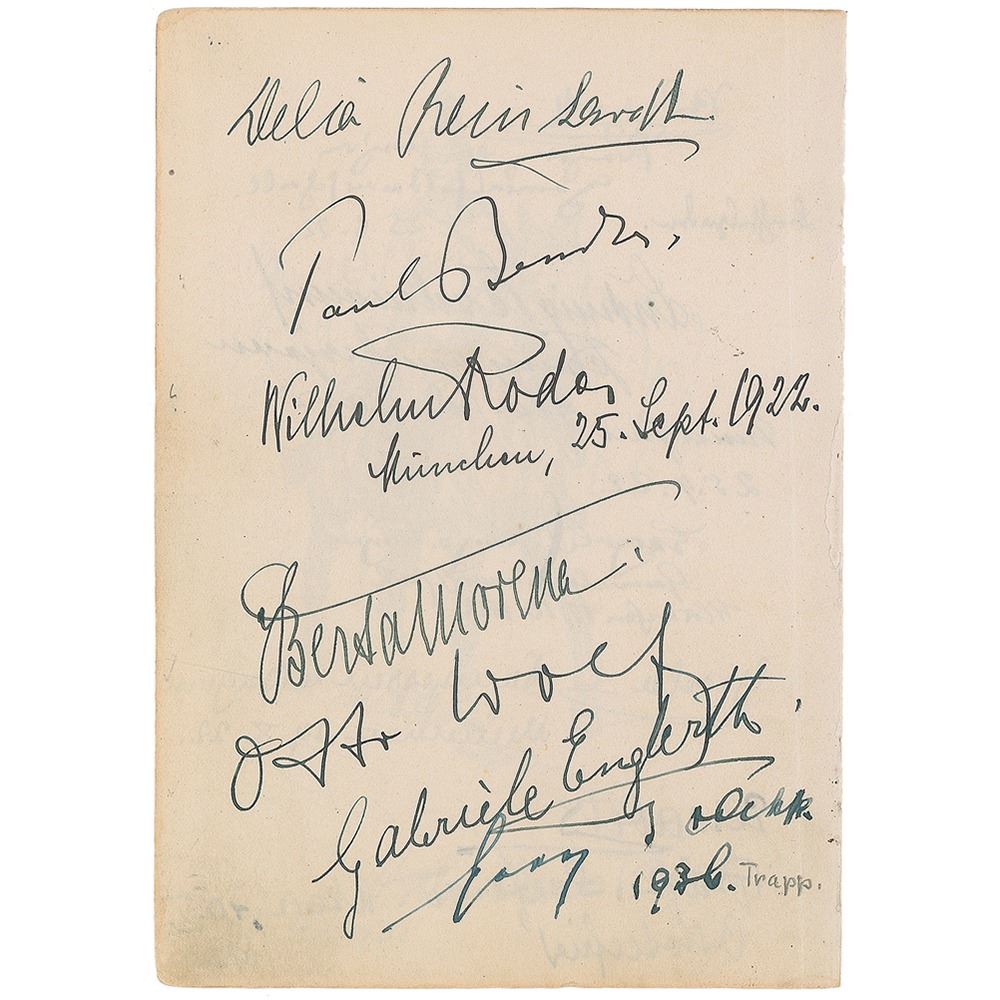 Delia Reinhardt.
Paul Bender.
Wilhelm Rode
München, 25. Sept. 1922.
Berta Morena.
Otto Wolf
Gabriele Englerth.
Georg
1936. Trapp.